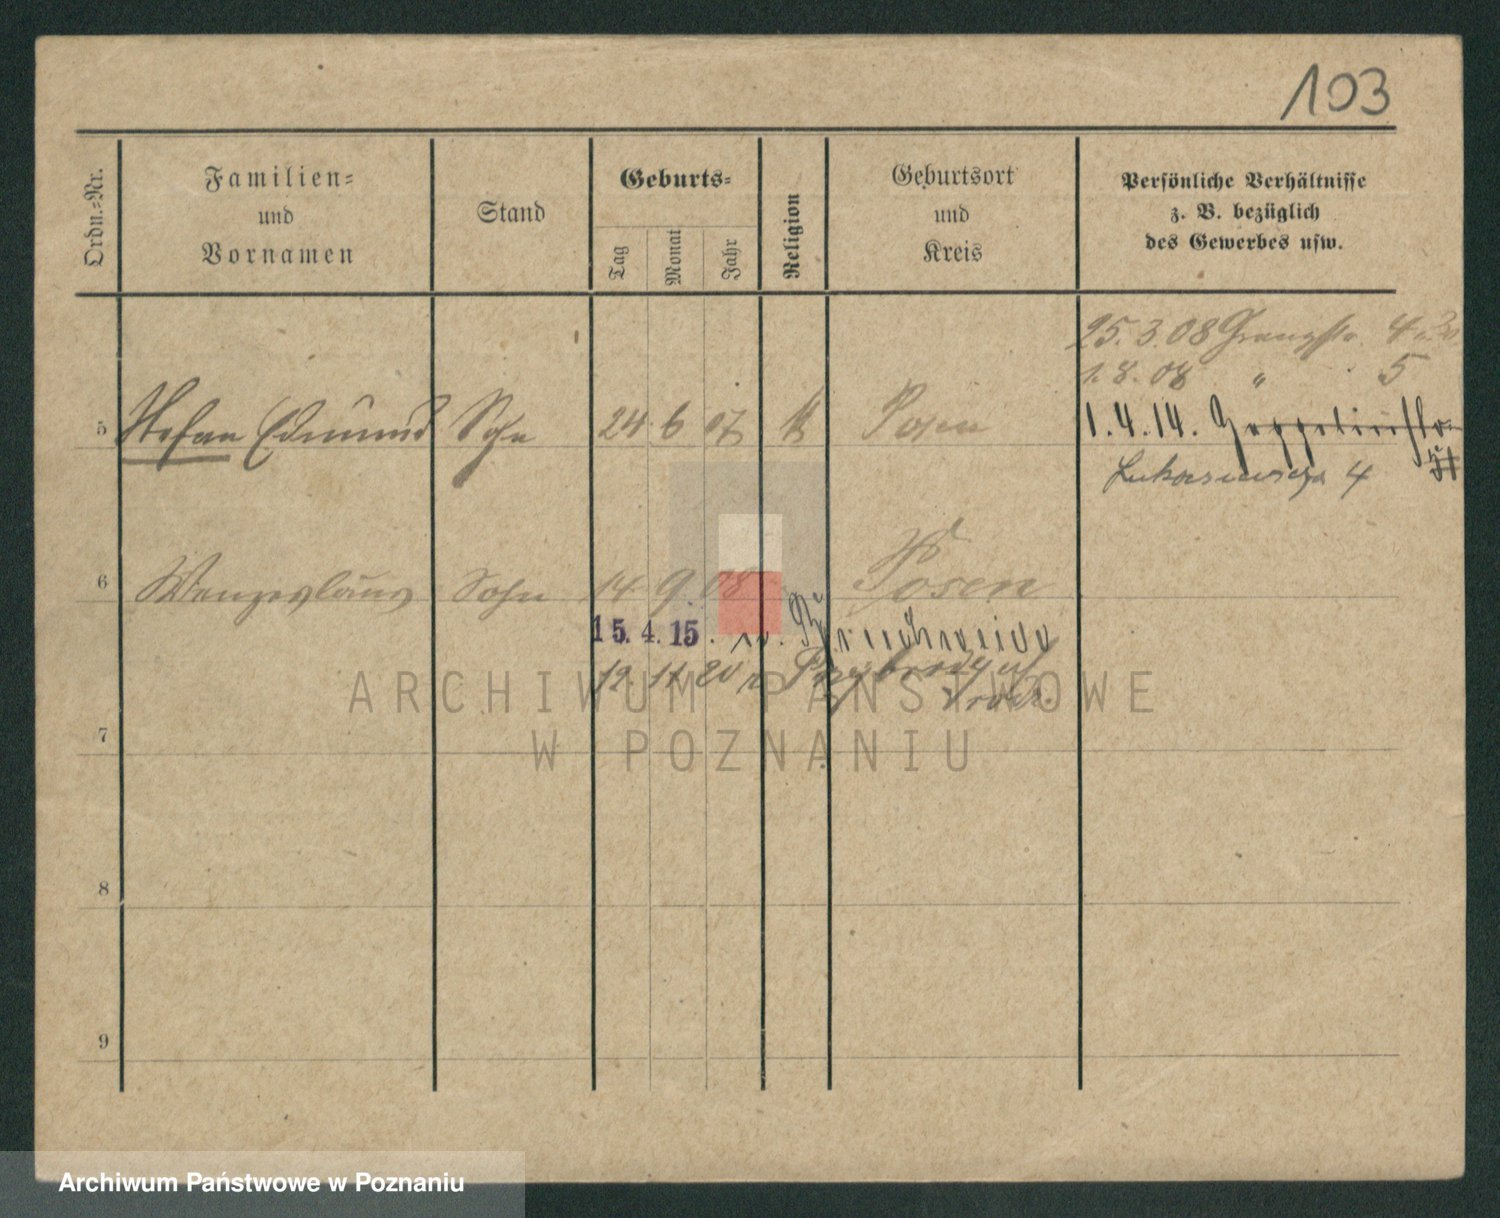 103
Ordn.=Nr.
Familien=
und
Vornamen
Stand
Geburts=
Tag
Monat
Jahr
Religion
Geburtsort
und
Kreis
Persönliche Verhältnisse
z. B. bezüglich
des Gewerbes usw.
25.3.08 4
1.8.08 " 5
5 Stefan Edmund Sohn 24 6 07 k Posen
1.4.14.
4
6 Wenzeslaus Sohn 14 9 08 Posen
15.4.15.
12.11.20 n.
7
8
9
ARCHIWUM PAŃSTWOWE
W POZNANIU
Archiwum Państwowe w Poznaniu